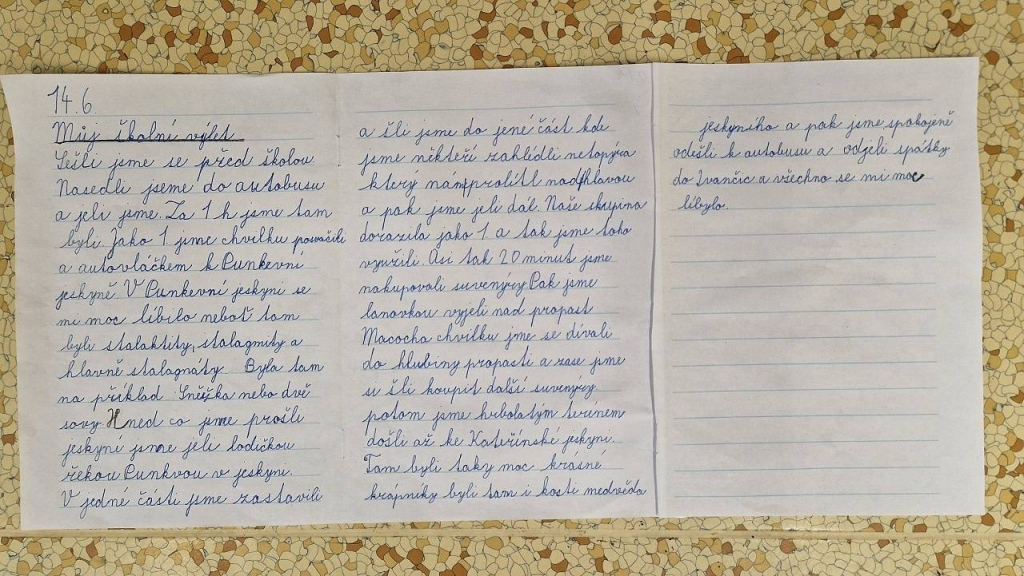 14.6
Můj školní výlet
Sešli jsme se před školou
Nasedli jseme do autobusu
a jeli jsme. Za 1 h jsme tam
byli. Jako 1 jsme chvilku posvačili
a autovláčkem k Punkevní
jeskyně V Punkevní jeskyni se
mi moc líbilo neboť tam
byli stalaktity, stalagmity a
hlavně stalagnáty Byla tam
na příklad Sněžka nebo dvě
sovy Hned co jsme prošli
jeskyní jsme jeli lodičkou
řekou Punkvou v jeskyni.
V jedné části jsme zastavili
a šli jsme do jené část kde
jsme někteří zahlédli netopýra
který nám prolítl nad hlavou
a pak jsme jeli dál. Naše skupina
dorazila jako 1 a tak jsme toho
využili. Asi tak 20 minut jsme
nakupovali suvenýry Pak jsme
lanovkou vyjeli nad propast
Macocha chvilku jme se dívali
do hlubiny propasti a zase jsme
si šli koupit další suvenýry
potom jsme hrbolatým terénem
došli až ke Kateřinské jeskyni.
Tam byli taky moc krásné
krápníky byli tam i kosti medvěda
jeskyního a pak jsme spokojeně
odešli k autobusu a odjeli spátky
do Ivančic a všechno se mi moc
líbylo.